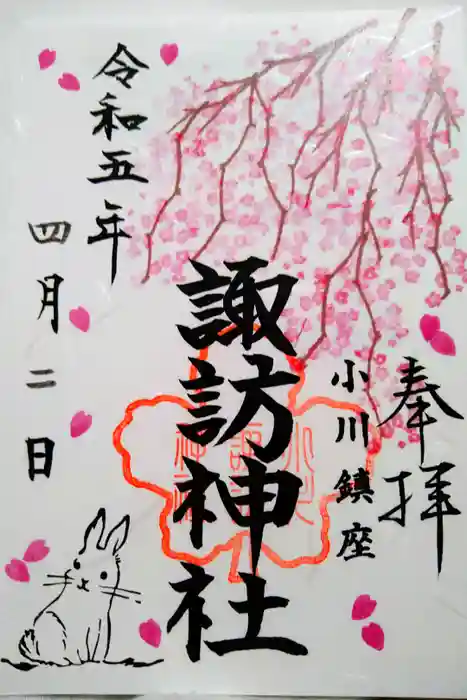 奉拝
小川鎮座
諏訪神社
令和五年
四月二日